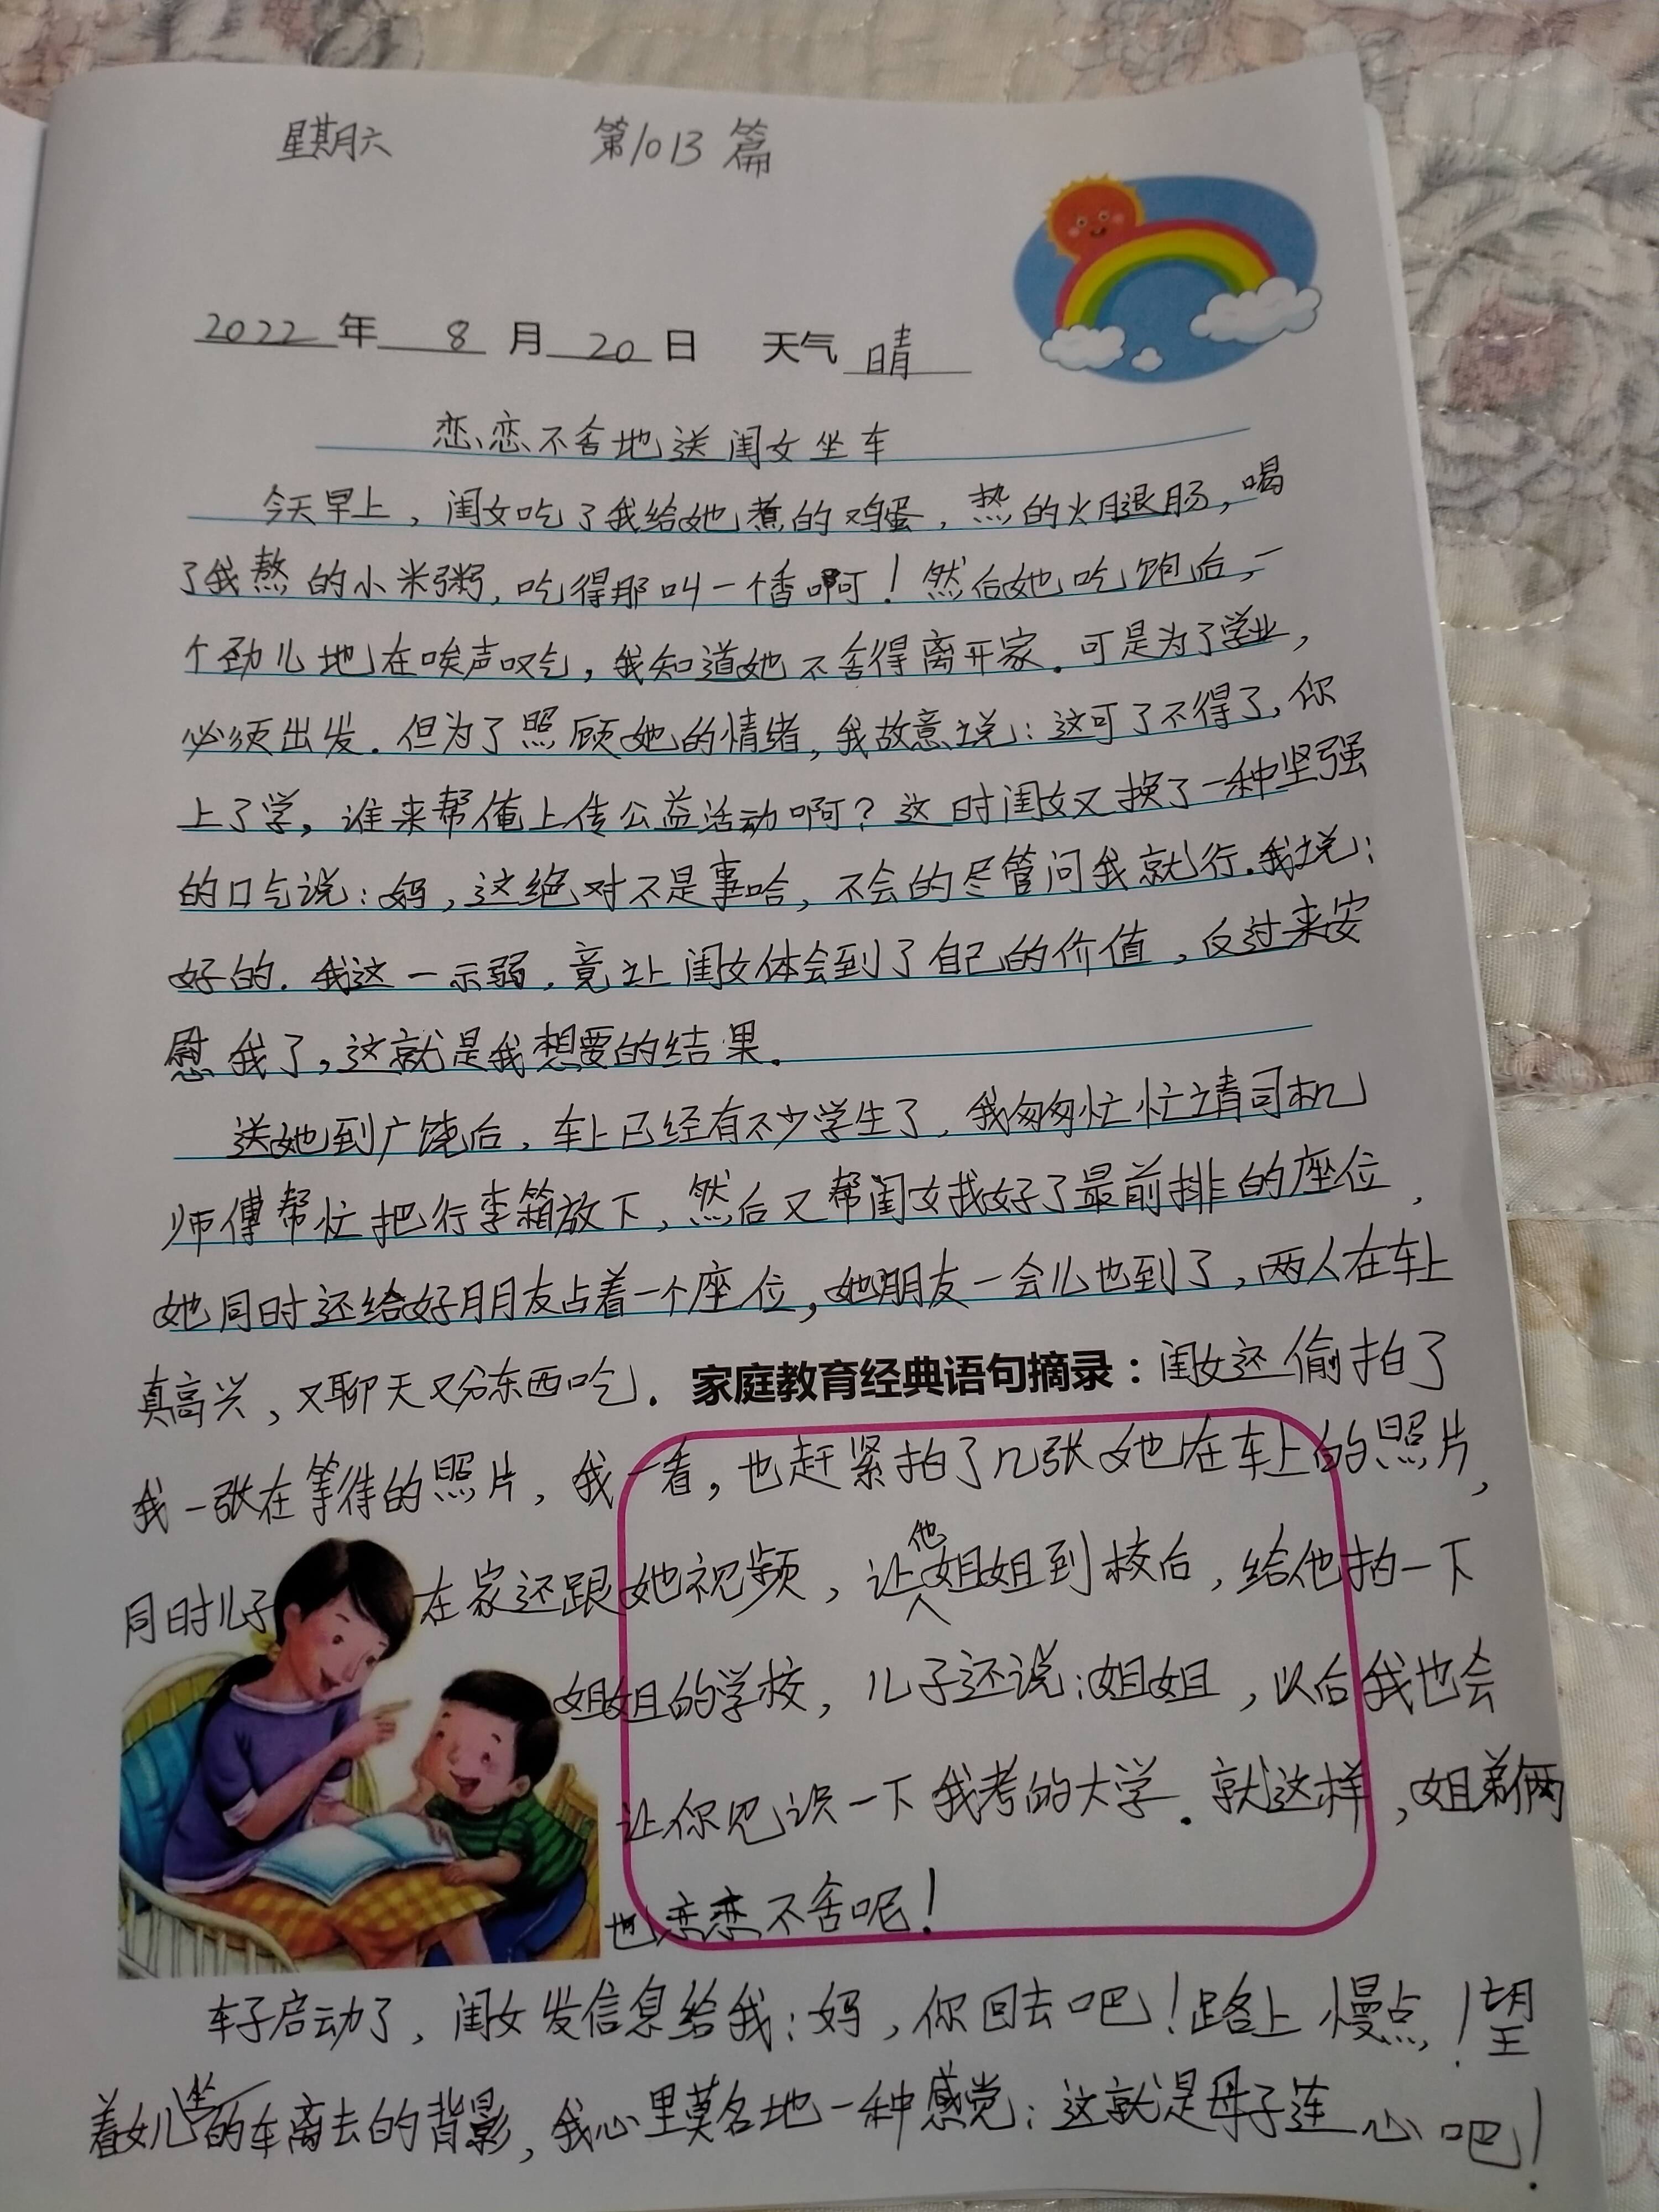 星期六 第1013篇
2022年 8月20日 天气 晴
恋恋不舍地送闺女坐车
今天早上，闺女吃了我给她煮的鸡蛋，热的火腿肠，喝
了我熬的小米粥，吃得那叫一个香啊！然后她吃饱后，一
个劲儿地在唉声叹气，我知道她不舍得离开家。可是为了学业，
必须出发。但为了照顾她的情绪，我故意说：这可了不得了，你
上了学，谁来帮俺上传公益活动啊？这时闺女又换了一种坚强
的口气说：妈，这绝对不是事哈，不会的尽管问我就行。我说：
好的。我这一示弱，竟让闺女体会到了自己的价值，反过来安
慰我了，这就是我想要的结果。
送她到广饶后，车上已经有不少学生了，我匆匆忙忙请司机
师傅帮忙把行李箱放下，然后又帮闺女找好了最前排的座位，
她同时还给好朋友占着一个座位，她朋友一会儿也到了，两人在车上
真高兴，又聊天又分东西吃。家庭教育经典语句摘录：闺女还偷拍了
我一张在等待的照片，我一看，也赶紧拍了几张她在车上的照片，
同时儿子在家还跟她视频，让他姐姐到校后，给他拍一下
姐姐的学校，儿子还说：姐姐，以后我也会
让你见识一下我考的大学。就这样，姐弟俩
也恋恋不舍呢！
车子启动了，闺女发信息给我：妈，你回去吧！路上慢点！望
着女儿坐的车离去的背影，我心里莫名地一种感觉：这就是母子连心吧！